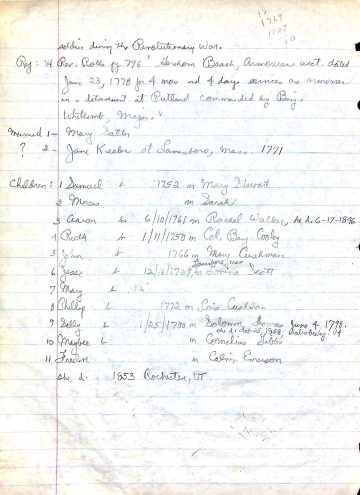 1769
soldier during the Revolutionary War.
Ref: Vt Rev. Rolls pg 796 "Gershom Beach, Armourer acct. dated
June 23, 1778 for 4 mos and 4 days service as armourer
in a detachment at Rutland commanded by Benj.
Whitcomb, Major."
Married 1- Mary
? 2- Jane Keeler at Lanesboro, Mass. 1771
Children: 1 Samuel b 1752 m Mary
2 Moses m Sarah
3 Aaron b 6/10/1761 m Rachel Walker,
4 Ruth b 1/11/1758 m Col. Benj Cooley
5 John b 1766 m Mary Cushman
6 Jesse b 12/6/1769, m Lovina Scott
7 Mary b 12
8 Philip b 1772 m Lois Cushman
9 Sally b 1/25/1780 m Solomon June 4, 1798.
10 b m Cornelius Gibbs
11 m Calvin Emerson
she d. 1853 Rochester, VT